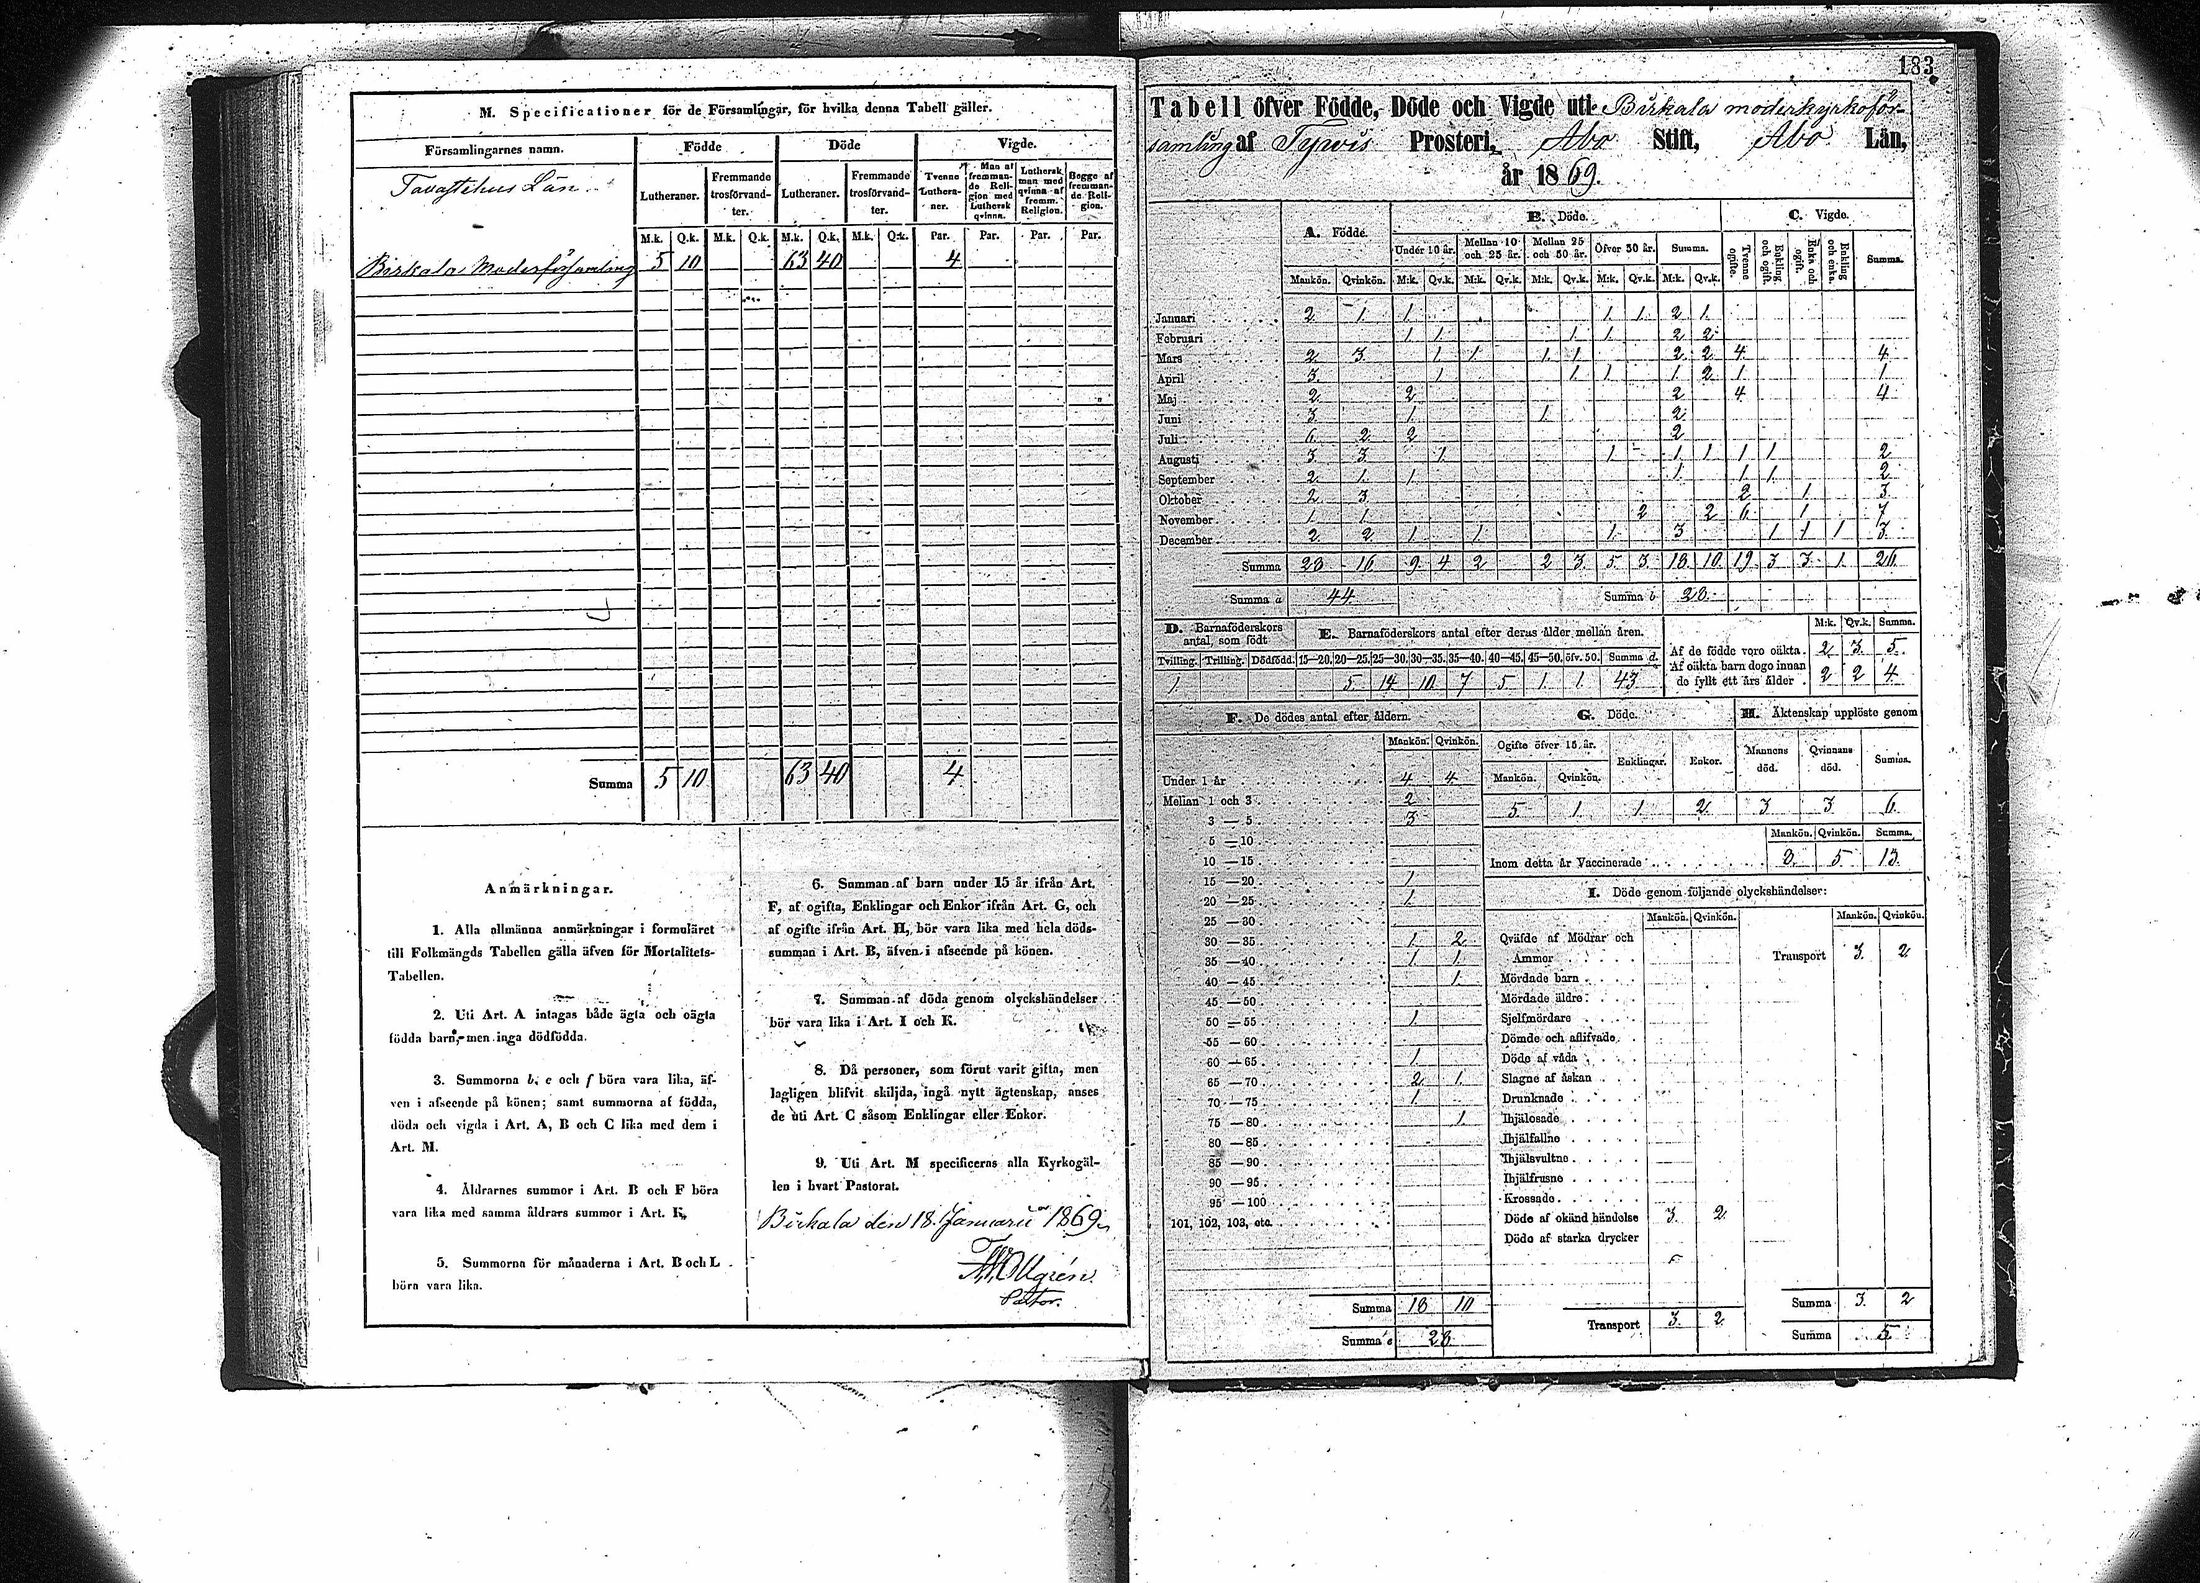 M. Specificationer för de Församlingar, för hvilka denna Tabell gäller.
Församlingarnes namn. Födde Döde Vigde.
Lutheraner. Fremmande trosförvandter. Lutheraner. Fremmande trosförvandter. Tvenne Lutheraner. Man af fremmande Religion med Luthersk qvinna. Luthersk man med qvinna af fremm. Religion. Begge af fremmande Religion.
M.k. Q.k. M.k. Q.k. M.k. Q.k. M.k. Q.k. Par. Par. Par. Par.
Tavastehus Län
Birkala Moderförsamling 5 10 63 40 4
Summa 5 10 63 40 4
Anmärkningar.
1. Alla allmänna anmärkningar i formuläret
till Folkmängds Tabellen gälla äfven för Mortalitets-
Tabellen.
2. Uti Art. A intagas både ägta och oägta
födda barn, men inga dödfödda.
3. Summorna b, e och f böra vara lika, äf-
ven i afseende på könen; samt summorna af födda,
döda och vigda i Art. A, B och C lika med dem i
Art. M.
4. Åldrarnes summor i Art. B och F böra
vara lika med samma åldrars summor i Art. K.
5. Summorna för månaderna i Art. B och L
böra vara lika.
6. Summan af barn under 15 år ifrån Art.
F, af ogifta, Enklingar och Enkor ifrån Art. G, och
af ogifte ifrån Art. H, bör vara lika med hela döds-
summan i Art. B, äfven i afseende på könen.
7. Summan af döda genom olyckshändelser
bör vara lika i Art. I och K.
8. Då personer, som förut varit gifta, men
lagligen blifvit skiljda, ingå nytt ägtenskap, anses
de uti Art. C såsom Enklingar eller Enkor.
9. Uti Art. M specificeras alla Kyrkogäl-
len i hvart Pastorat.
Birkala den 18 Januarii 1869
Pastor.
183
Tabell öfver Födde, Döde och Vigde uti Birkala moderkyrkoför-
samling af Tyrvis Prosteri, Åbo Stift, Åbo Län,
år 1869.
A. Födde. B. Döde. C. Vigde.
Under 10 år. Mellan 10 och 25 år. Mellan 25 och 50 år. Öfver 50 år. Summa. Tvenne ogifte. Enkling och ogift. Enka och ogift. Enkling och enka. Summa.
Mankön. Qvinkön. M:k. Qv.k. M:k. Qv.k. M:k. Qv.k. M:k. Qv.k. M:k. Qv.k.
Januari 2 1 1 1 1 2 1
Februari 1 1 1 1 2 2
Mars 2 3 1 1 1 1 2 2 4 4
April 3 1 1 1 1 2 1 1
Maj 2 2 2 4 4
Juni 3 1 1 2
Juli 6 2 2 2
Augusti 3 3 1 1 1 1 1 1 2
September 2 1 1 1 1 1 2
Oktober 2 3 2 1 3
November 1 1 2 2 6 1 7
December 2 2 1 1 1 3 1 1 1 3
Summa 28 16 9 4 2 2 3 5 3 18 10 19 3 3 1 26
Summa a 44 Summa b 28
D. Barnaföderskors antal, som födt E. Barnaföderskors antal efter deras ålder mellan åren. M:k. Qv.k. Summa.
Tvilling. Trilling. Dödfödd. 15—20. 20—25. 25—30. 30—35. 35—40. 40—45. 45—50. öfv. 50. Summa d.
1 5 14 10 7 5 1 1 43
Af de födde voro oäkta 2 3 5
Af oäkta barn dogo innan
de fyllt ett års ålder 2 2 4
F. De dödes antal efter åldern.
Mankön. Qvinkön.
Under 1 år 4 4
Mellan 1 och 3 2
3—5 3
5—10
10—15
15—20 1
20—25 1
25—30
30—35 1 2
35—40 1 1
40—45 1
45—50
50—55 1
55—60
60—65 1
65—70 2 1
70—75 1
75—80 1
80—85
85—90
90—95
95—100
101, 102, 103, etc.
Summa 18 10
Summa e 28
G. Döde. H. Äktenskap upplöste genom
Ogifte öfver 15 år. Enklingar. Enkor. Mannens död. Qvinnans död. Summa.
Mankön. Qvinkön.
5 1 1 2 3 3 6
Mankön. Qvinkön. Summa.
Inom detta år Vaccinerade 8 5 13
I. Döde genom följande olyckshändelser:
Mankön. Qvinkön. Mankön. Qvinkön.
Qväfde af Mödrar och
Ammor
Transport 3 2
Mördade barn
Mördade äldre
Sjelfmördare
Dömde och aflifvade
Döde af våda
Slagne af åskan
Drunknade
Ihjälosade
Ihjälfallne
Ihjälsvultne
Ihjälfrusne
Krossade
Döde af okänd händelse 3 2
Döde af starka drycker
Transport 3 2
Summa 3 2
Summa 5